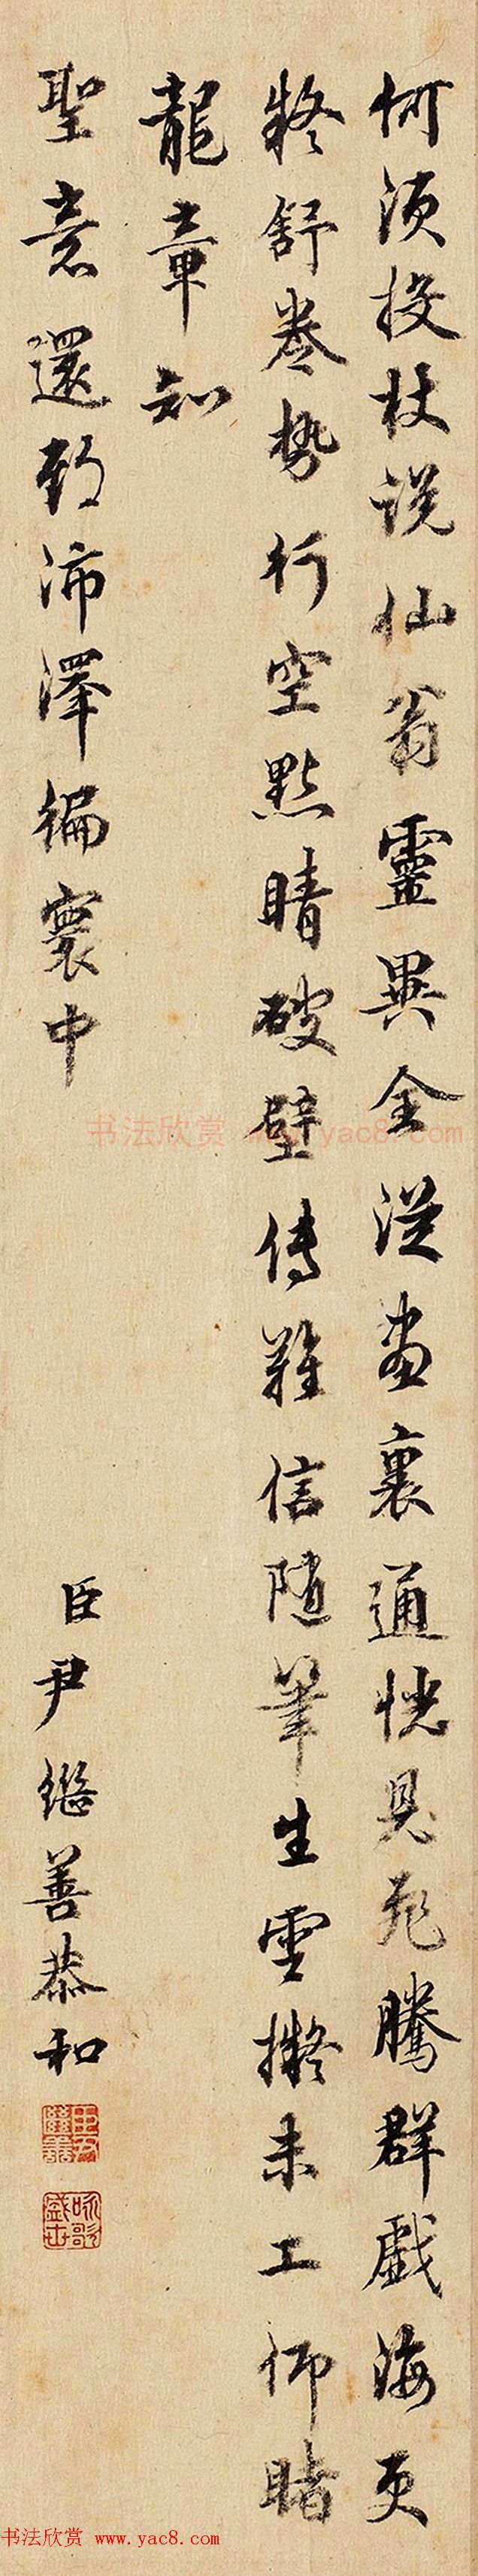 何須投杖說仙翁靈異全從畫裏通恍見飛騰群戲海更
疑舒卷勢行空點睛破壁傳難信隨筆生雲擬未工仰睹
龍章知
聖意還敷沛澤徧寰中
臣尹繼善恭和
书法欣赏 www.yac8.com
书法欣赏 www.yac8.com